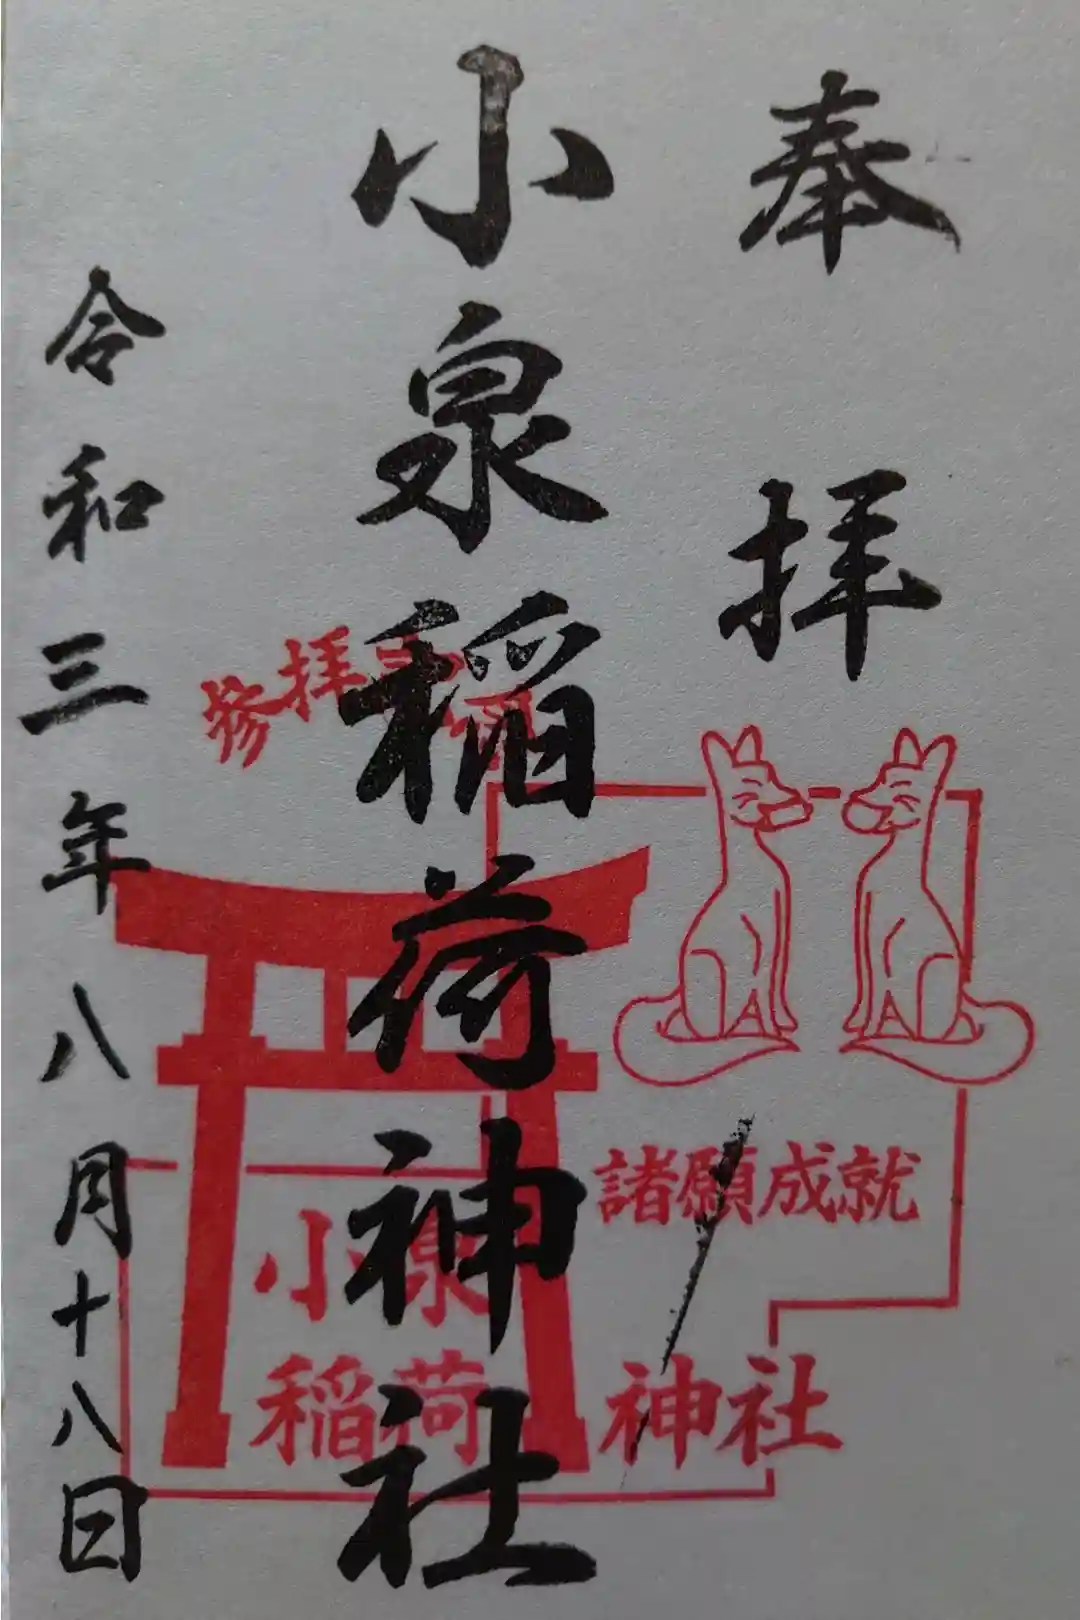 奉拝
小泉稲荷神社
令和三年八月十八日
参拝
諸願成就
小泉
稲荷神社